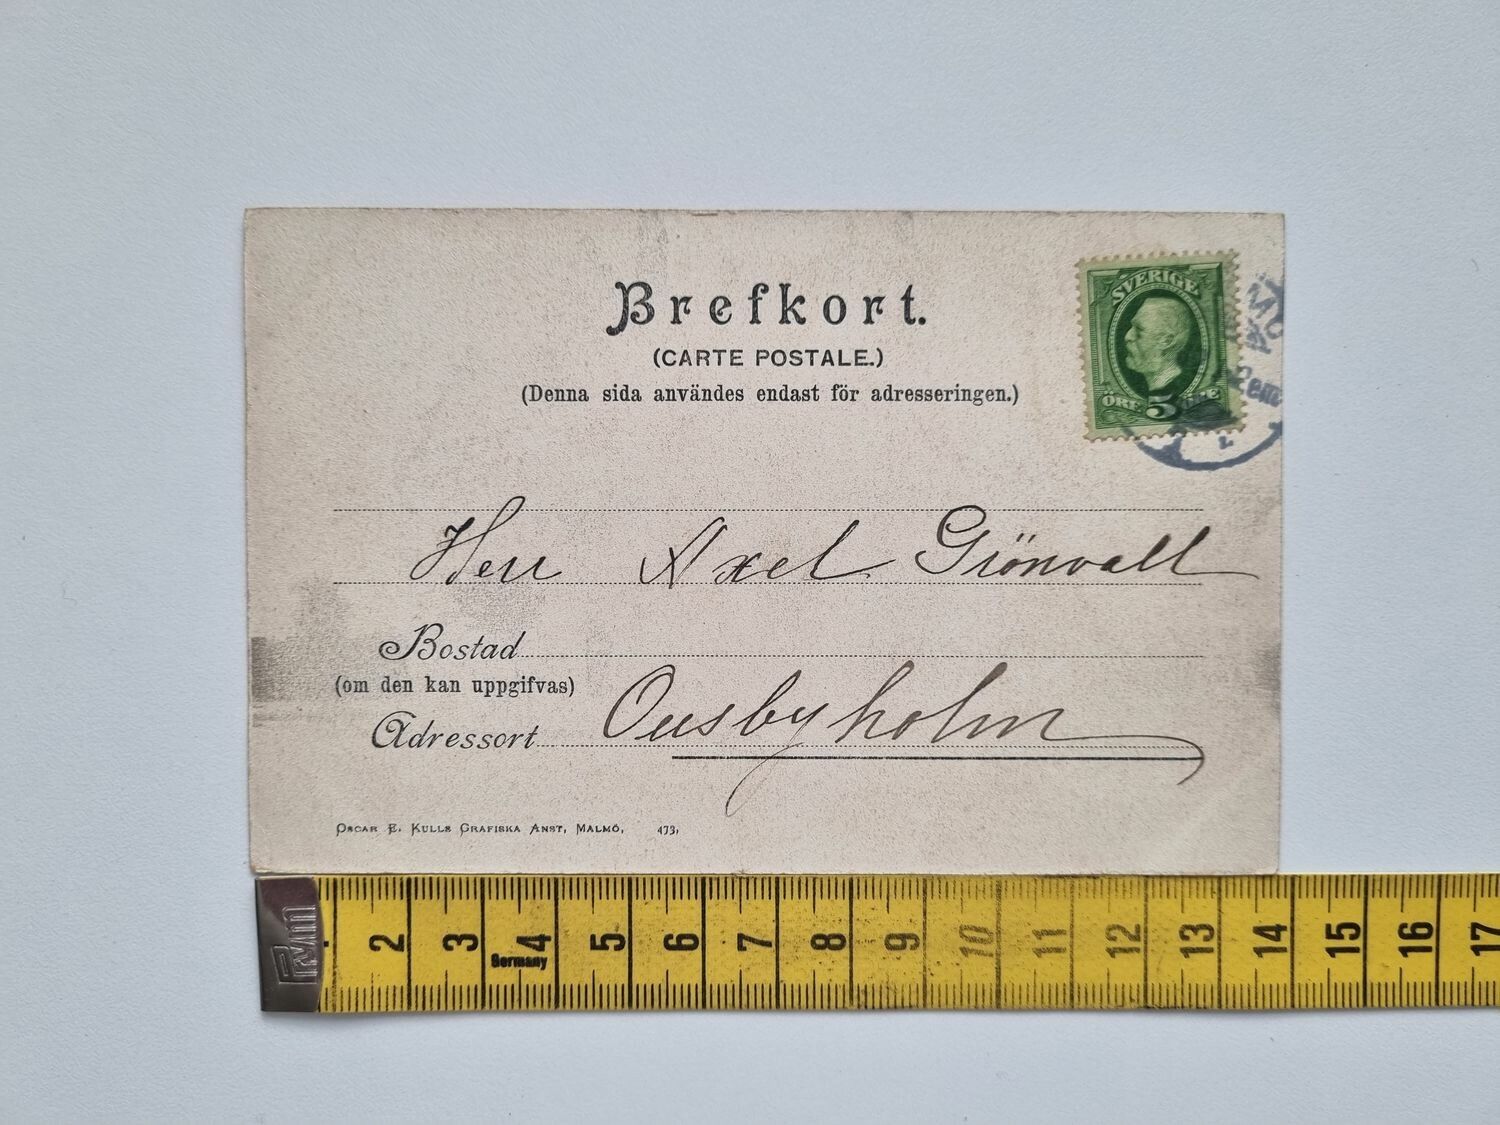 Brefkort.
(CARTE POSTALE.)
(Denna sida användes endast för adresseringen.)
SVERIGE
ÖRE 5 ÖRE
2 em
Herr Axel Grönvall
Bostad
(om den kan uppgifvas)
Adressort Ousbyholm
OSCAR E. KULLS GRAFISKA ANST, MALMÖ, 473,
2 3 4 5 6 7 8 9 10 11 12 13 14 15 16 17
Germany